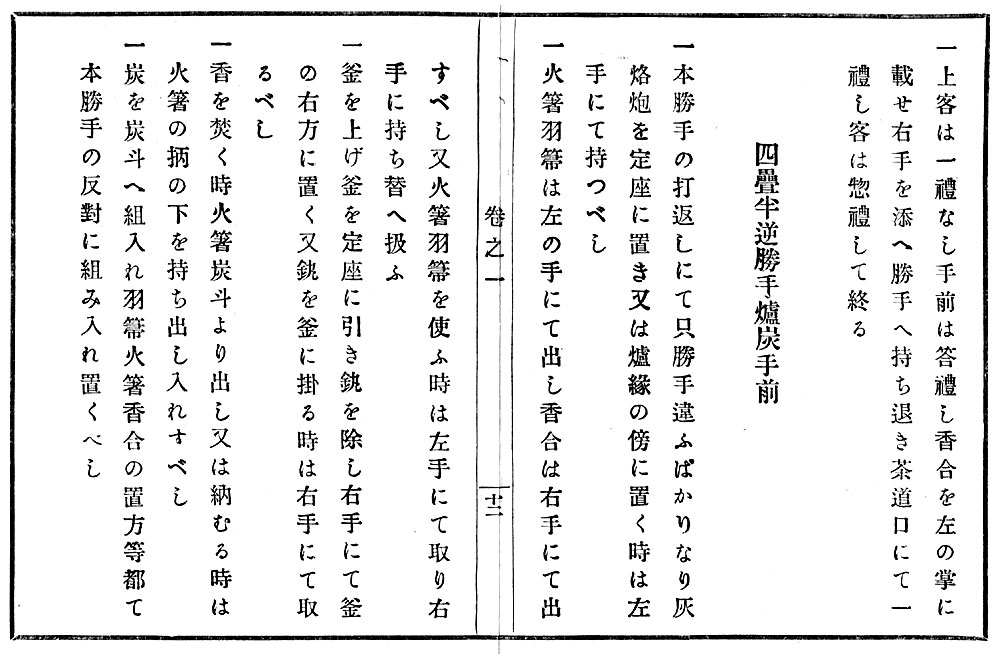 一上客は一禮なし手前は答禮し香合を左の掌に
載せ右手を添へ勝手へ持ち退き茶道口にて一
禮し客は惣禮して終る
四疊半逆勝手爐炭手前
一本勝手の打返しにて只勝手違ふばかりなり灰
烙炮を定座に置き又は爐緣の傍に置く時は左
手にて持つべし
一火箸羽箒は左の手にて出し香合は右手にて出
卷之一
十二
すべし又火箸羽箒を使ふ時は左手にて取り右
手に持ち替へ扱ふ
一釜を上げ釜を定座に引き銚を除し右手にて釜
の右方に置く又銚を釜に掛る時は右手にて取
るべし
一香を焚く時火箸炭斗より出し又は納むる時は
火箸の柄の下を持ち出し入れすべし
一炭を炭斗へ組入れ羽箒火箸香合の置方等都て
本勝手の反對に組み入れ置くべし